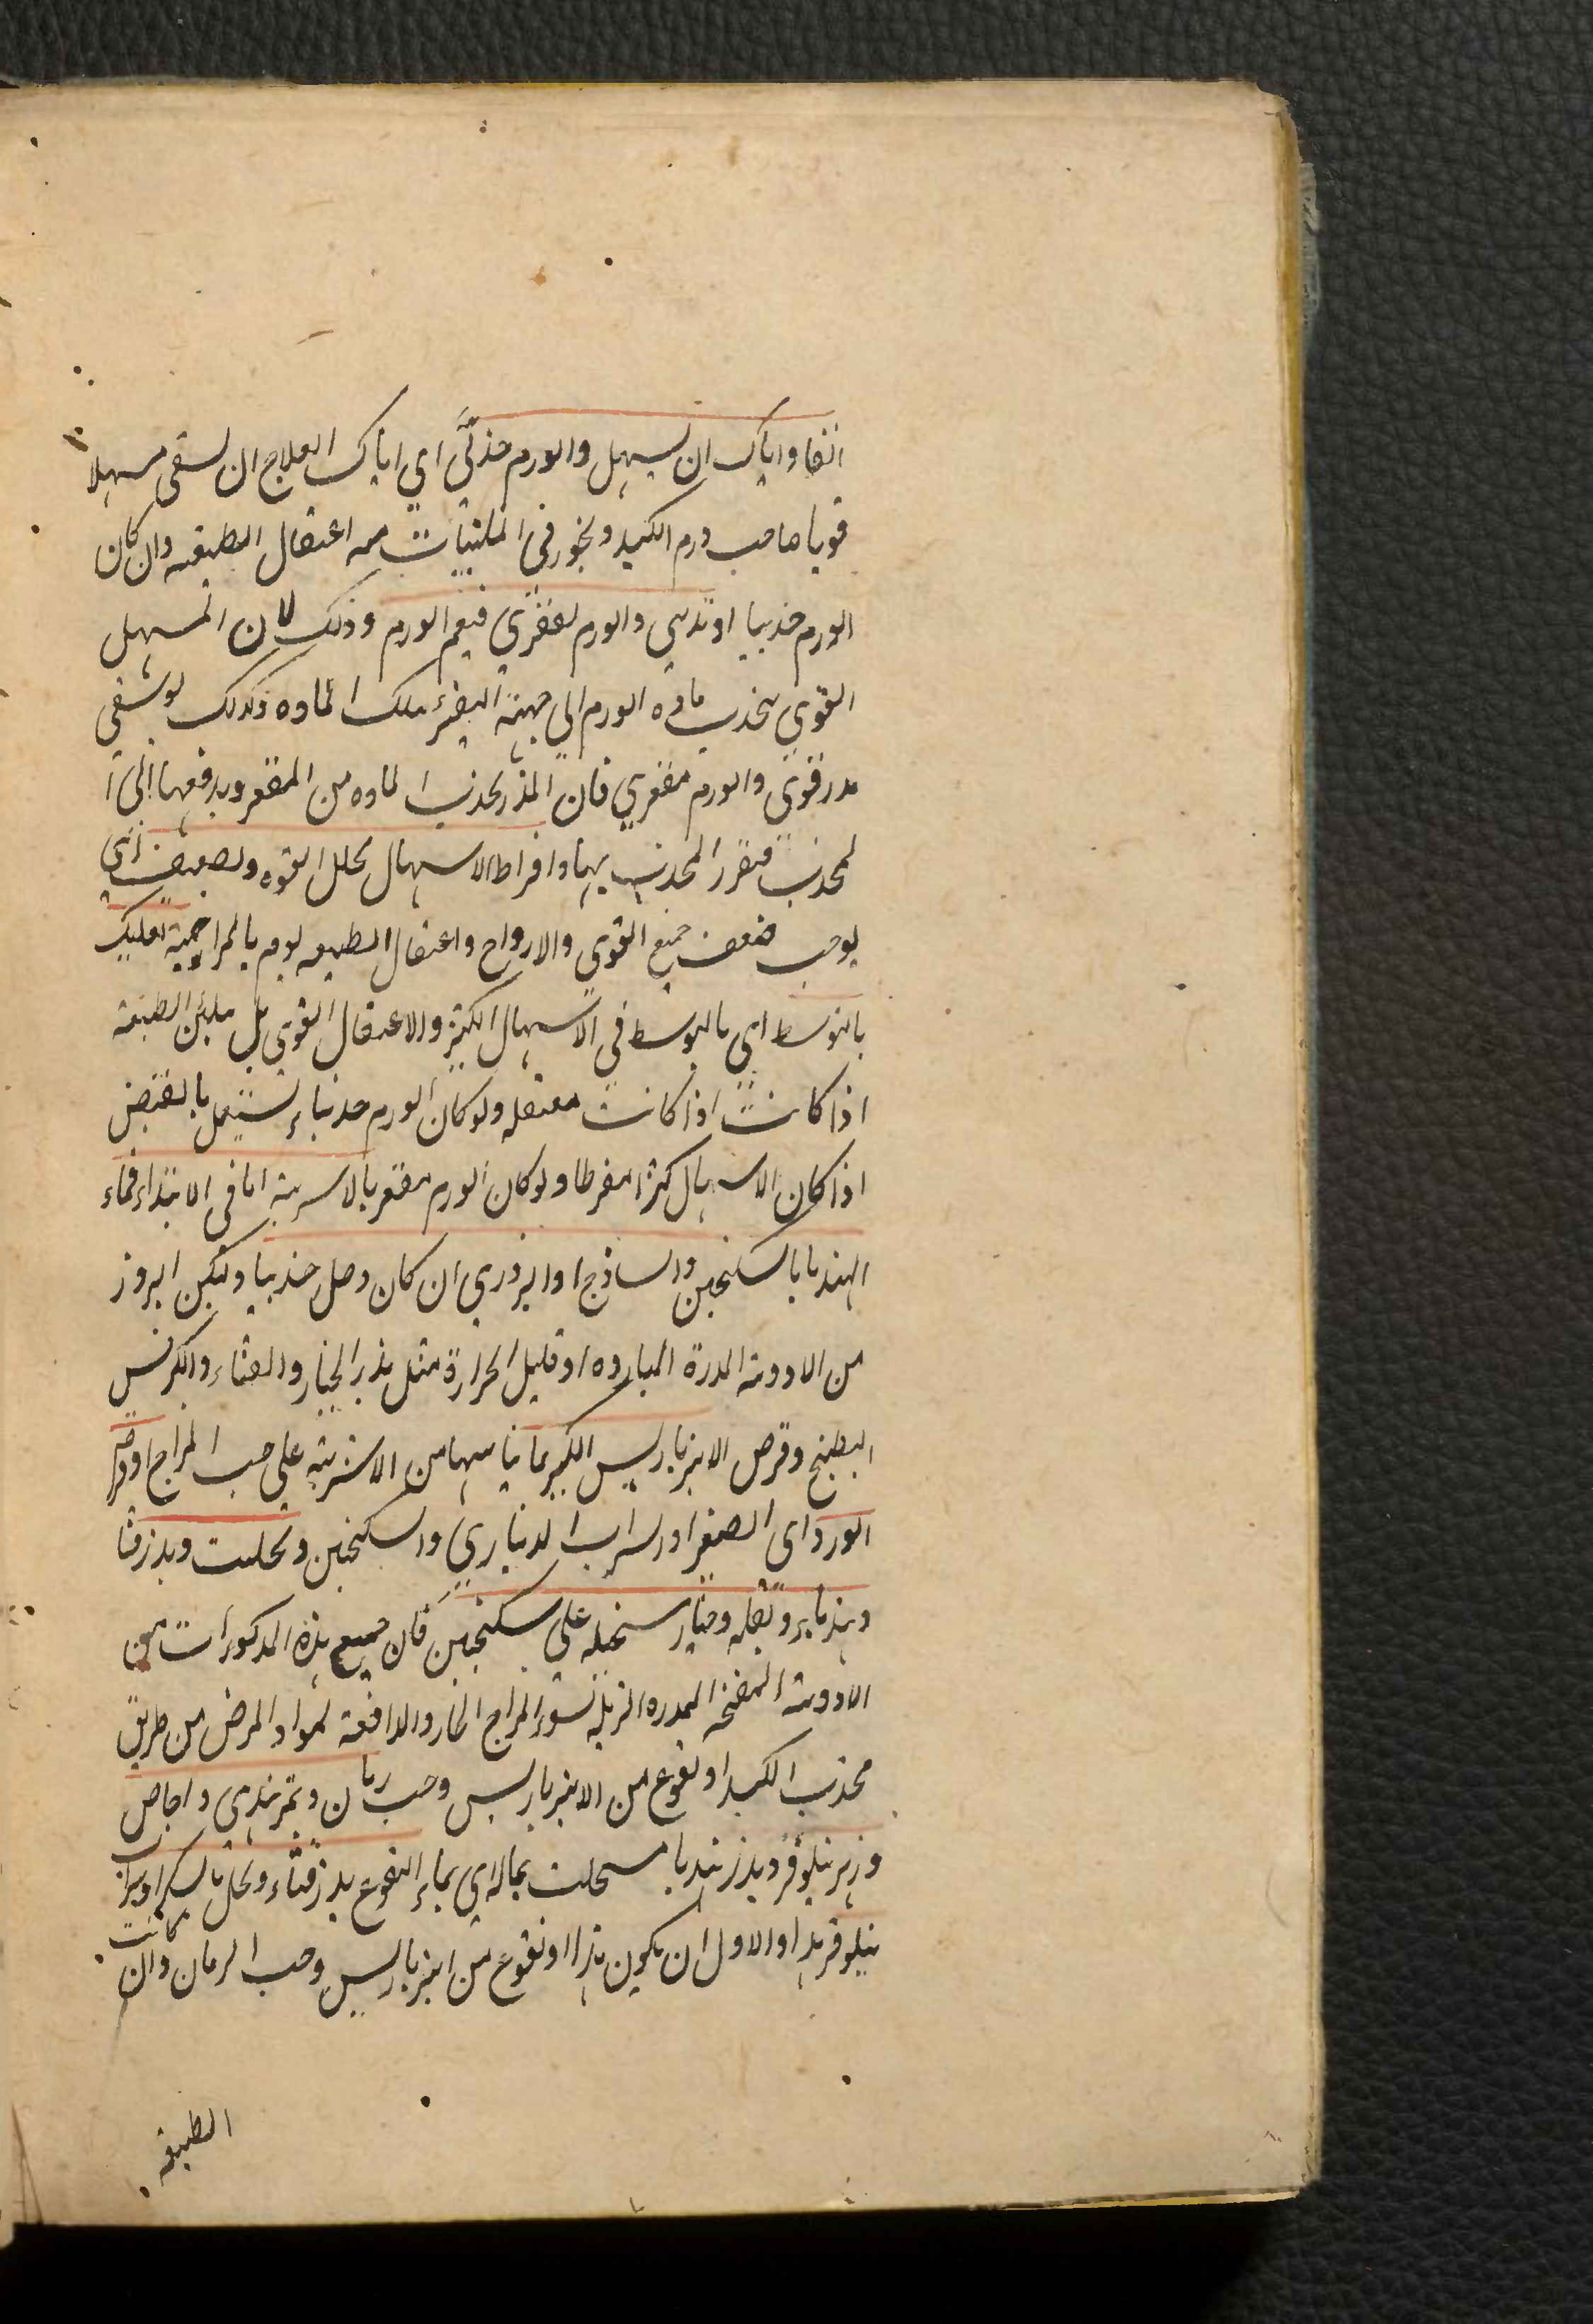 انفا واياك ان يسهل والورم حدبى اي اياك العلاج ان تسقى مسهلا
قويا صاحب ورم الكبد ويجوز فى الملينات مع اعتقال الطبيعه وان كان
الورم حدبيا او تدبى والورم لمقعرى فيعم الورم وذلك لان المسهل
القوي يجذب ماده الورم الي جهته البضر بتلك الماده وكذلك لو سقي
مدر قوى والورم مقعري فان المدر يجذب الماده من المقعر ويدفعها الى ا
لمحدب فتقرر المحدب بها وافراط الاسهال يحلل القوه ويضعف اى
يوجب ضعف جميع القوي والارواح واعتقال الطبيعه يوم بالمزاحمة فعليك
بالتوسط اي بالتوسط في الاسهال الكثير والاعتقال القوي بل بلين الطبيعة
اذا كانت اذا كانت معتقله ولو كان الورم حدبيا يستعمل بالقبض
اذا كان الاسهال كثيرا مفرطا ولو كان الورم مقعريا الاشربة اما فى الابتداء فماء
الهندبا بالسكنجبين والساذج او البزوري ان كان وصل حدبيا ولتكن البزور
من الادوية المدرة البارده او قليل الحرارة مثل بذر الخيار والقثاء والكرفس
البطيخ وقرص الانبرباريس الكبير بما يناسبها من الاشربة على حسب المزاج او قرص
الورد اى الصغير او شراب الديناري والسكنجبين وتحلبت وبذر قثا
وهندبا بر وبقله وخيار ستحبله على سكنجبين فان جميع هذه المذكورات من
الادوية المفتحه المدره المزيله لسوء المزاج الحار والدافعة لمواد المرض من طريق
محدب الكبد او نقوع من الانبرباريس وحب رمان وتمرهندى واجاص
وزهر نيلوفر وبذر هندبا مسحلب بماله اي بماء النقوع بذر قثاء ويحلى بالسكر او شراب
نيلوفر بدا والاول ان يكون هذا او نقوع من انبرباريس وحب الرمان وان كانت
الطبيعه